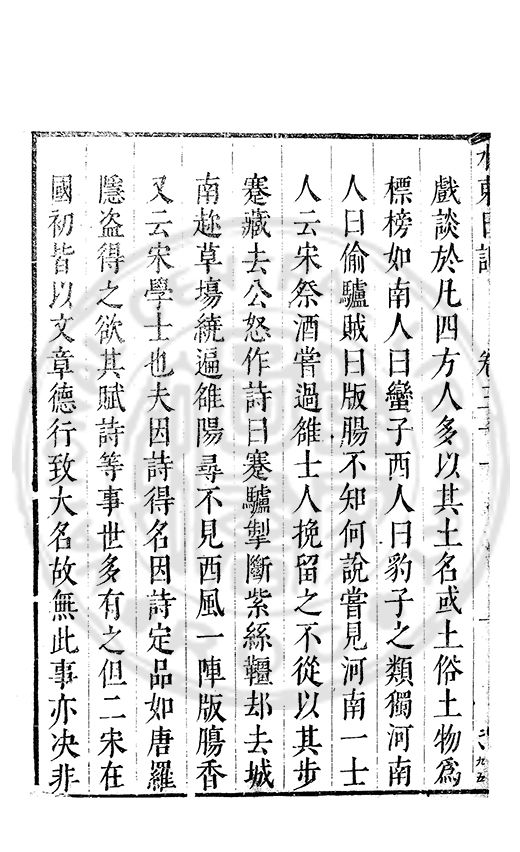 水東日記 卷三十
戲談於凡四方人多以其土名或土俗土物爲
標榜如南人曰蠻子西人曰豹子之類獨河南
人曰偷驢賊曰版腸不知何說嘗見河南一士
人云宋祭酒嘗過雒士人挽留之不從以其步
蹇藏去公怒作詩曰蹇驢掣斷紫絲韁却去城
南趂草塲繞遍雒陽尋不見西風一陣版膓香
又云宋學士也夫因詩得名因詩定品如唐羅
隱盜得之欲其賦詩等事世多有之但二宋在
國初皆以文章德行致大名故無此事亦决非